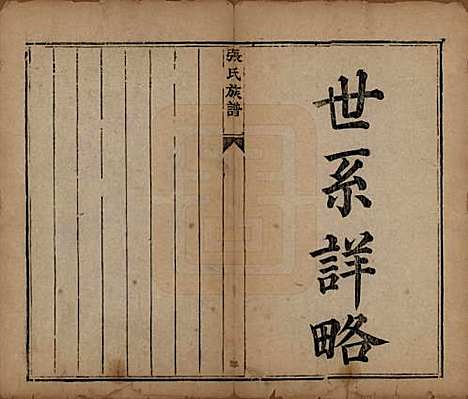 世系詳略
張氏族譜